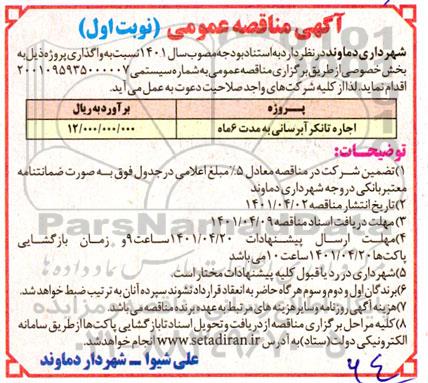 آگهی مناقصه عمومی (نوبت اول)
شهرداری دماوند در نظر دارد به استناد بودجه مصوب سال ۱۴۰۱ نسبت به واگذاری پروژه ذیل به
بخش خصوصی از طریق برگزاری مناقصه عمومی به شماره سیستمی ۲۰۰۰۱۰۹۵۹۳۵۰۰۰۰۰۷
اقدام نماید. لذا از کلیه شرکت های واجد صلاحیت دعوت به عمل می آید.
پروژه برآورد به ریال
اجاره تانکر آبرسانی به مدت ۶ ماه ۱۲/۰۰۰/۰۰۰/۰۰۰
توضیحات:
۱) تضمین شرکت در مناقصه معادل ۵٪ مبلغ اعلامی در جدول فوق به صورت ضمانتنامه
معتبر بانکی در وجه شهرداری دماوند
۲) تاریخ انتشار مناقصه ۱۴۰۱/۰۴/۰۲
۳) مهلت دریافت اسناد مناقصه ۱۴۰۱/۰۴/۰۹
۴) مهلت ارسال پیشنهادات ۱۴۰۱/۰۴/۲۰ ساعت ۹ و زمان بازگشایی
پاکت ها ۱۴۰۱/۰۴/۲۰ ساعت ۱۰ می باشد
۵) شهرداری در رد یا قبول کلیه پیشنهادات مختار است.
۶) برندگان اول و دوم و سوم هرگاه حاضر به انعقاد قرارداد نشوند سپرده آنان به ترتیب ضبط خواهد شد.
۷) هزینه آگهی روزنامه و سایر هزینه های مرتبط به عهده برنده مناقصه می باشد.
۸) کلیه مراحل برگزاری مناقصه از دریافت و تحویل اسناد تا بازگشایی پاکت ها از طریق سامانه
الکترونیکی دولت (ستاد) به آدرس www.setadiran.ir انجام خواهد شد.
علی شیوا ـ شهردار دماوند